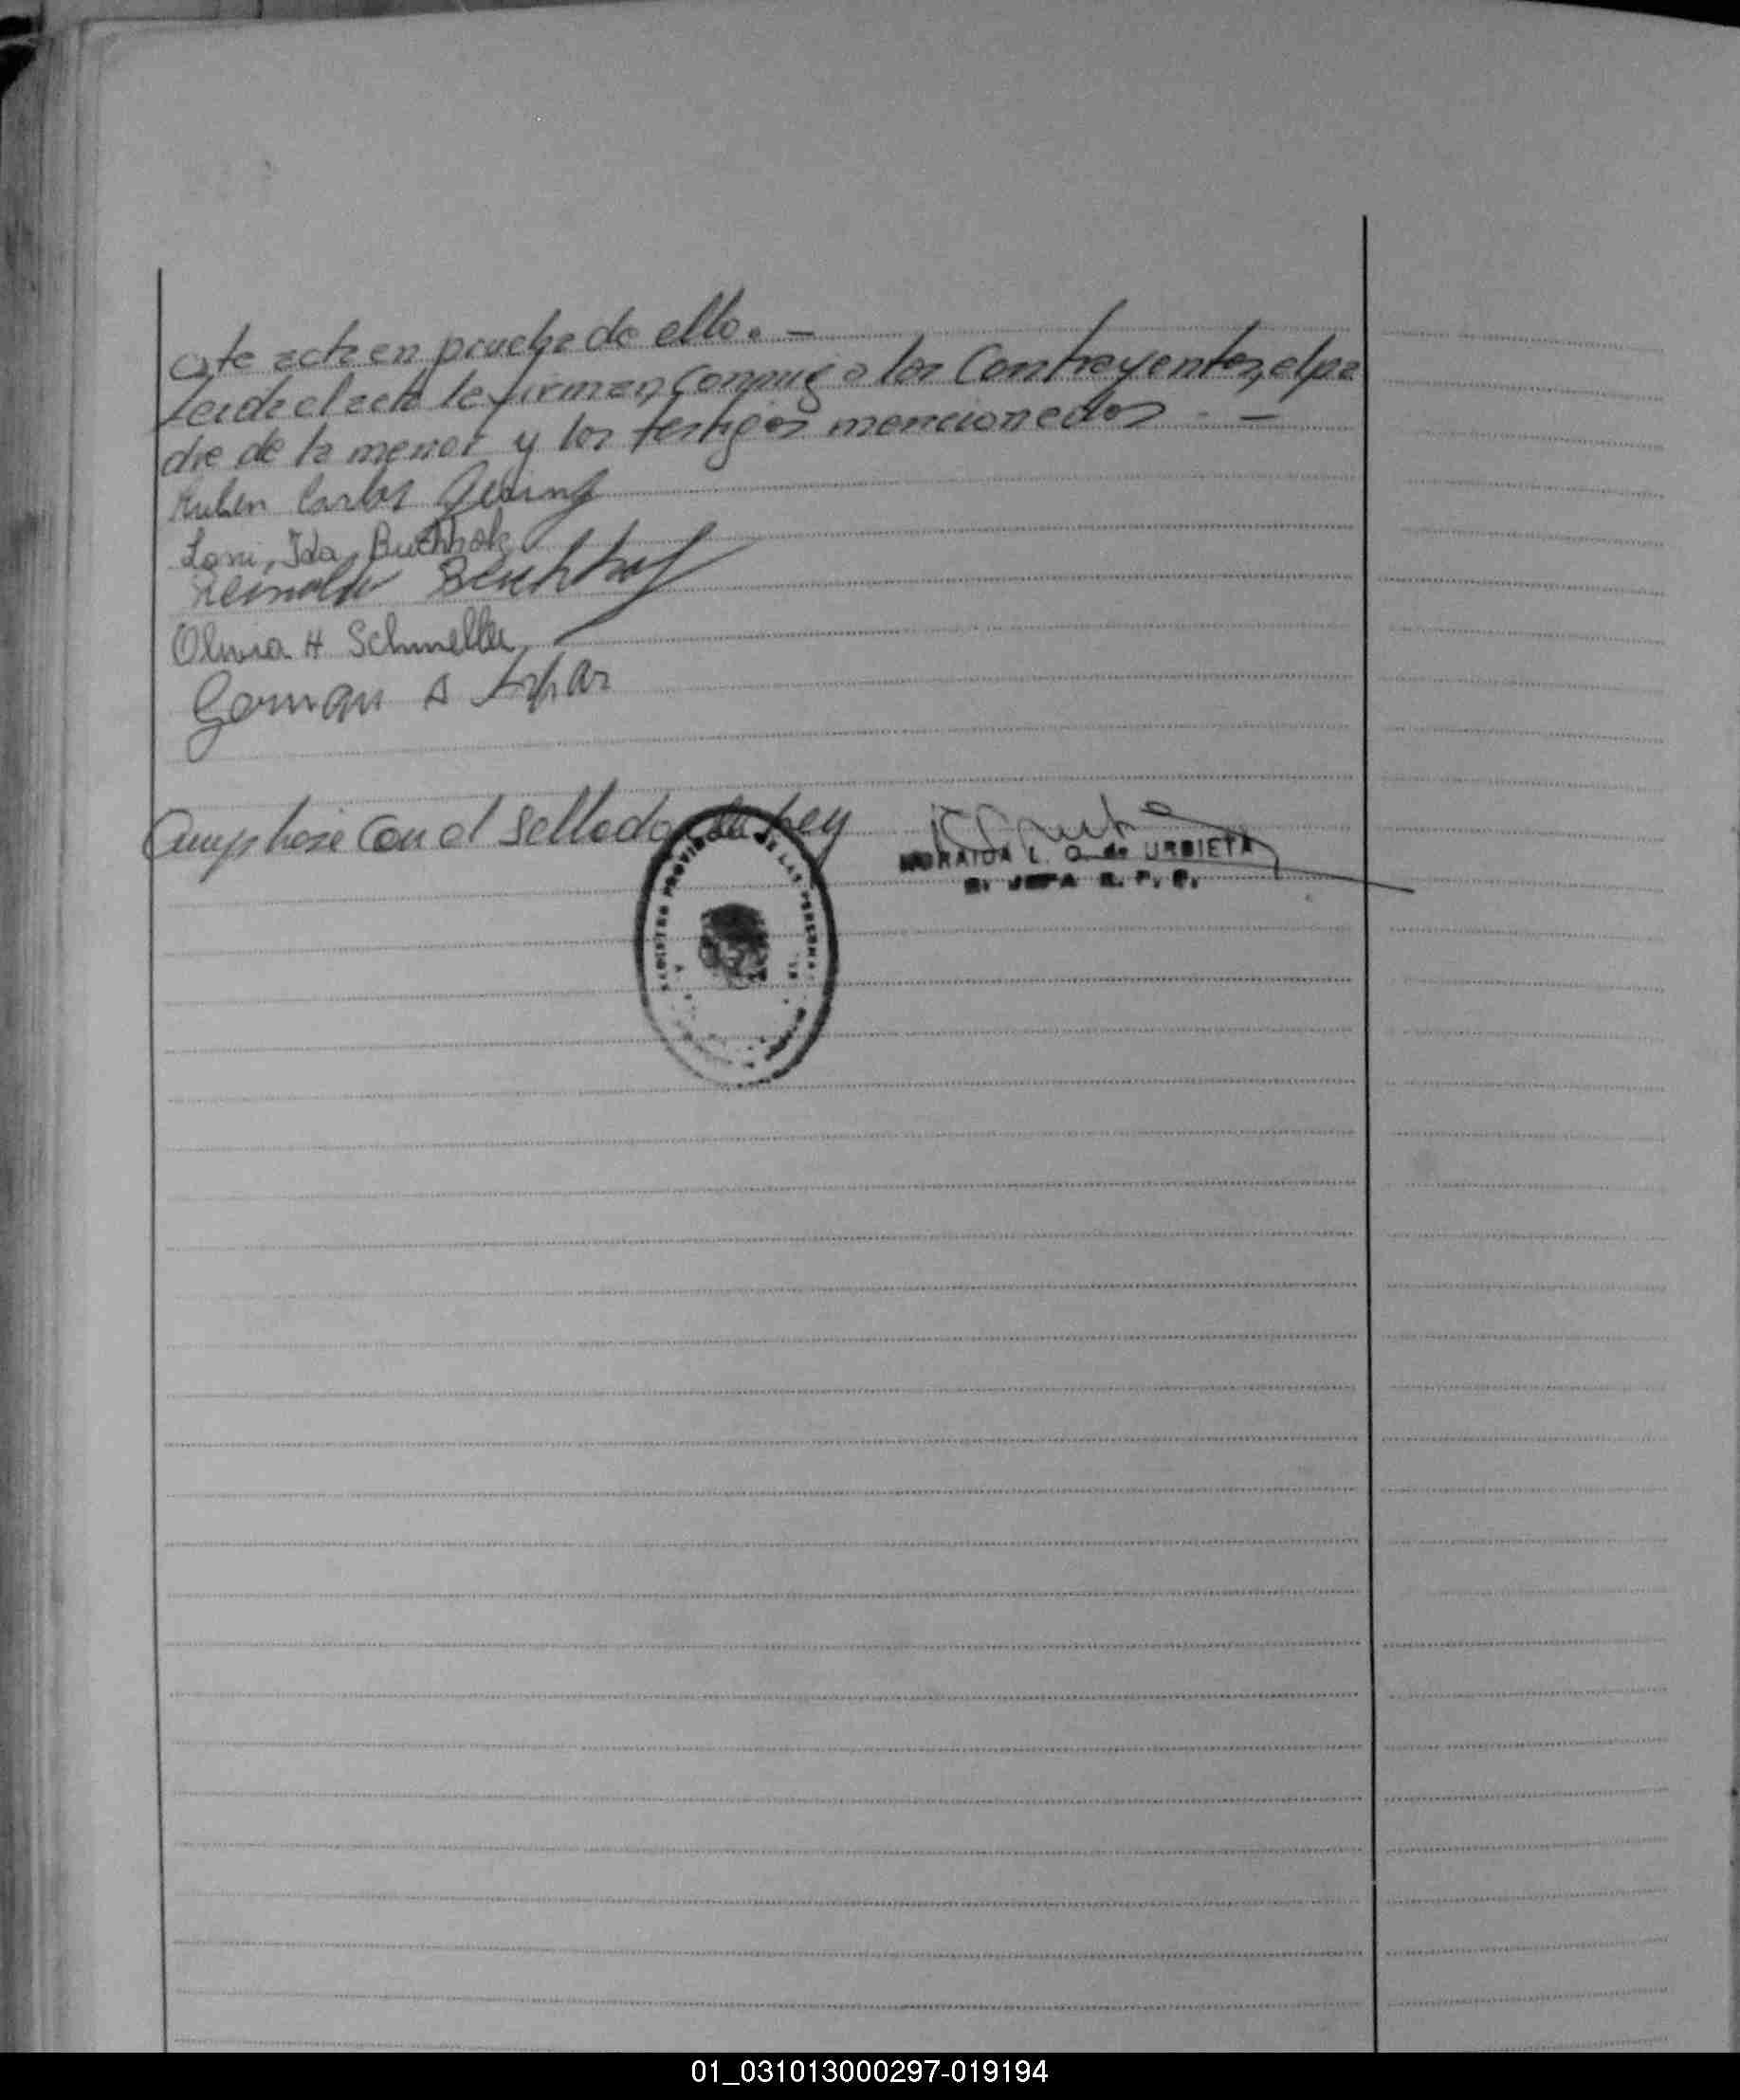 este acta en prueba de ello. —
Leida el acta la firman, conmigo los Contrayentes, el pa
dre de la menor y los testigos mencionados. —
Ruben Carlos
Loni, Ida, Buchholz
Reinoldo Buchholz
Olivia H Schmeller
German A
Cumplase con el Sellado de Ley
REGISTRO PROVINCIAL DE LAS PERSONAS
L. O. de URBIETA
JEFA R. P. P.
01_031013000297-019194